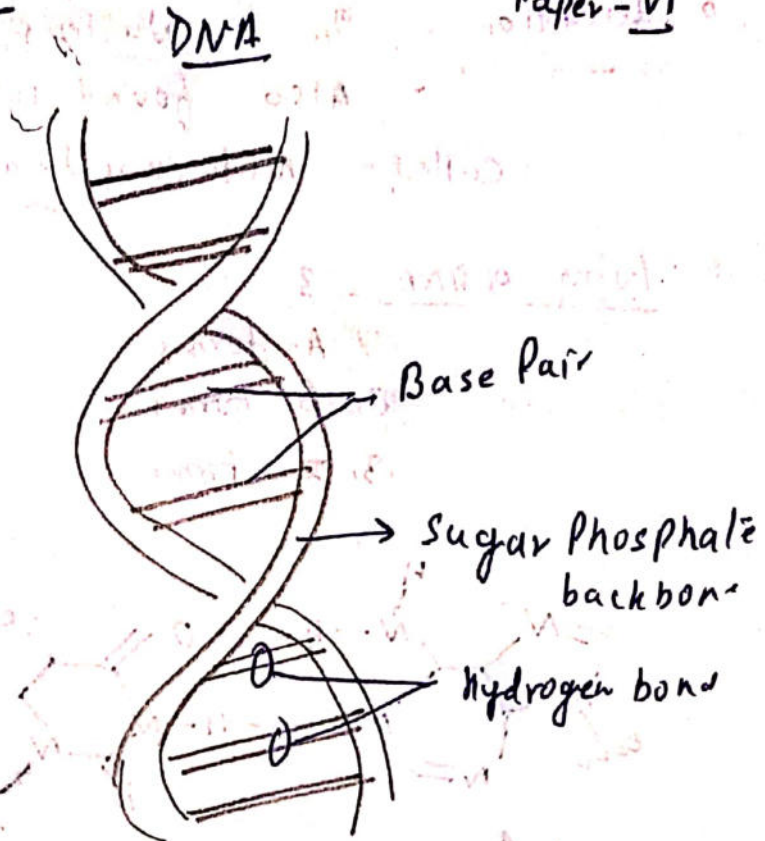 Paper - VI
DNA
Base Pair
Sugar Phosphate
backbone
Hydrogen bond